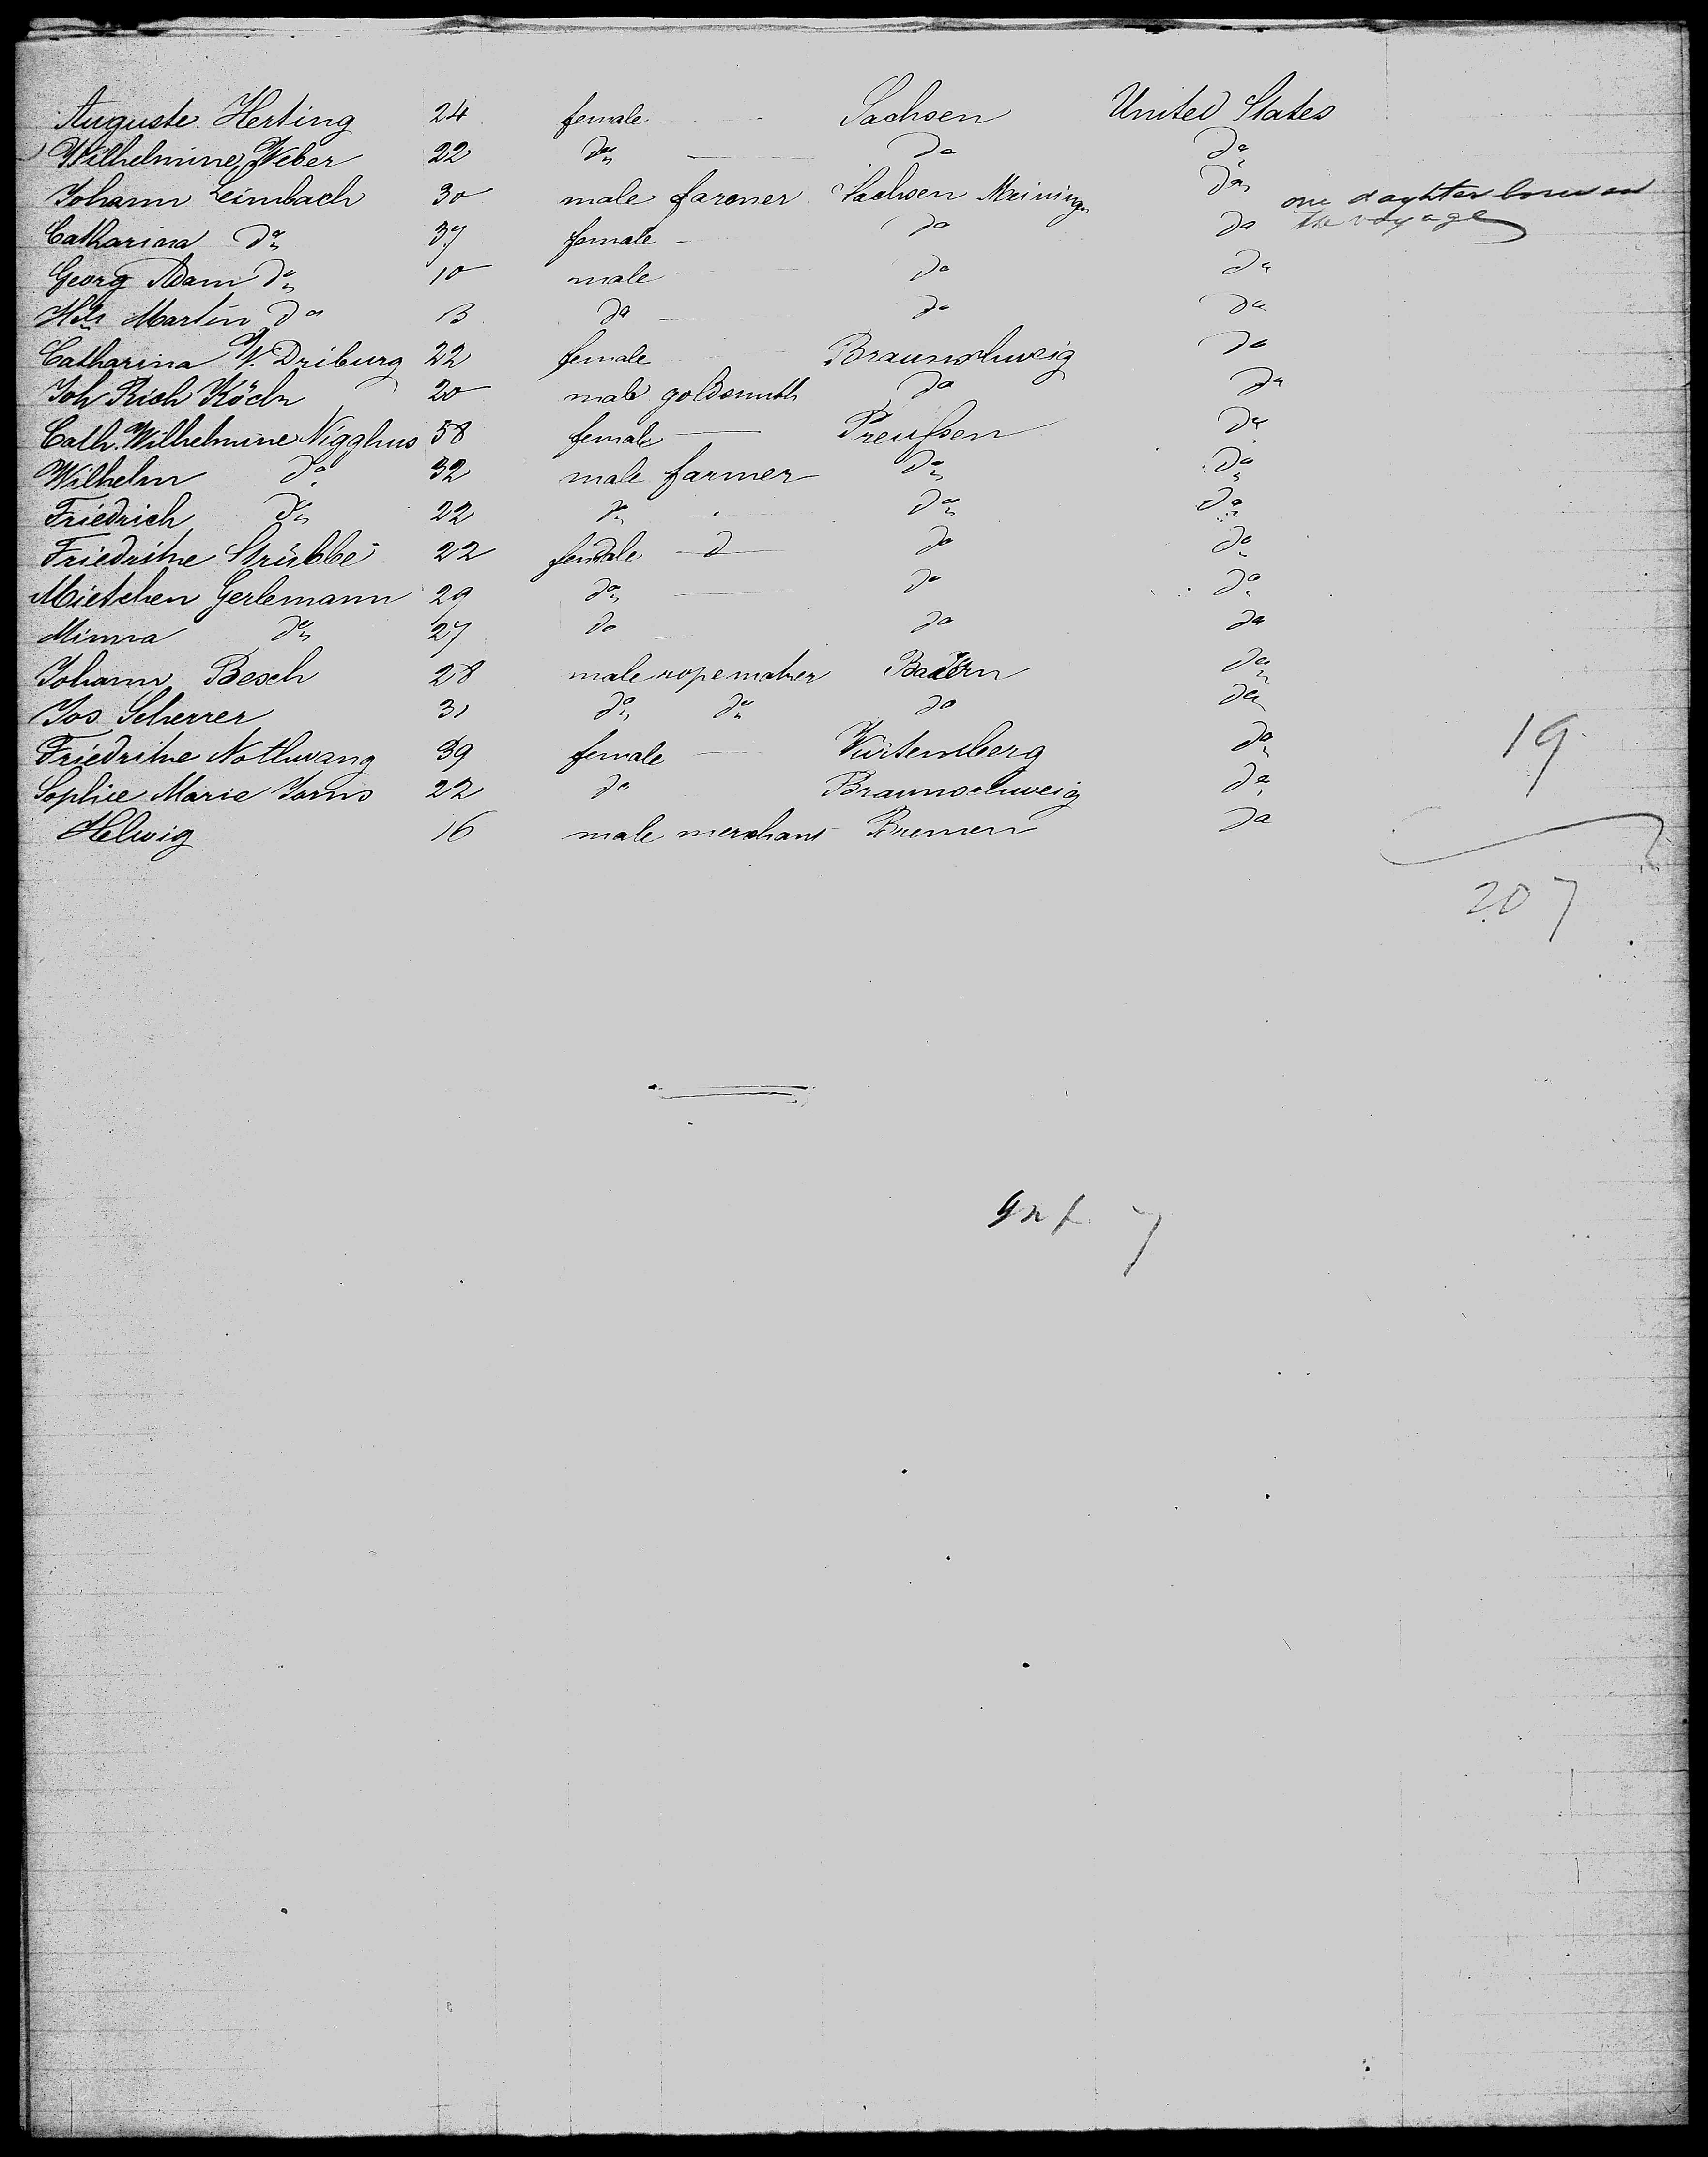 Auguste Herting 24 female Sachsen United States
Wilhelmine Weber 22 do — do do
Johann Leimbach 30 male farmer Sachsen Meining. do one daghter born on the voyage
Catharina do 37 female - do do
Georg Adam do 10 male do do
Martin do do do do
Catharina V. Driburg 22 female Braunschweig do
Joh Rich 20 male goldsmith do do
Cath. Wilhelmine Nigghus 58 female — Preußen do
Wilhelm do 32 male farmer do do
Friedrich do 22 do do do
Friedrike Strübbe 22 female — do do
Mietchen Gerlemann 29 do — do do
Minna do 27 do do do
Johann Besch 28 male ropemaker Baiern do
Jos Scherrer 31 do do do do
Friedrike Nothwang 39 female — Würtemberg do
Sophie Marie Jorns 22 do Braunschweig do
Helwig 16 male merchant Bremen do
19
207
Inf. 7